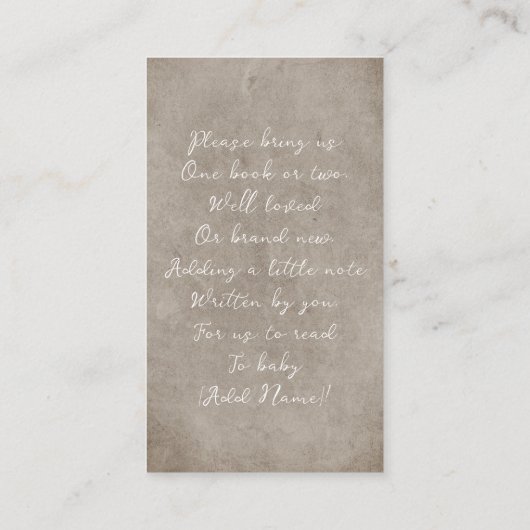 Please bring us
One book or two.
Well loved
Or brand new.
Adding a little note
Written by you.
For us to read
To baby
[Add Name]!